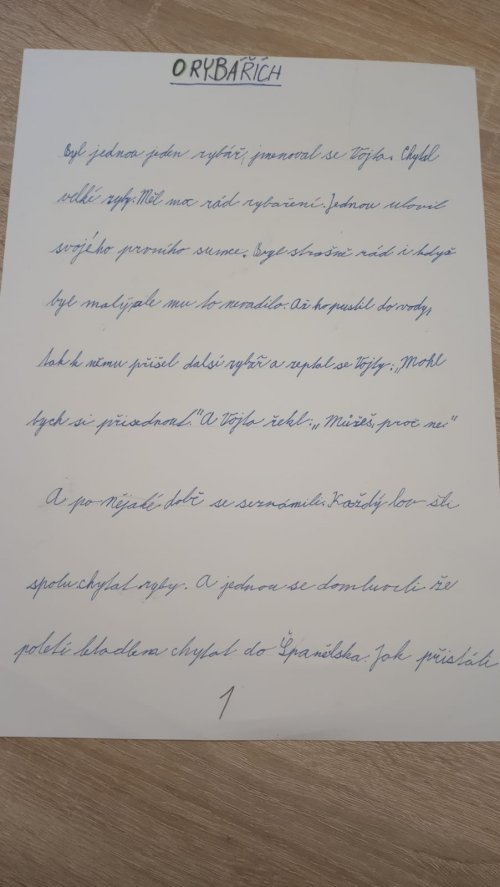 O RYBÁŘÍCH
Byl jednou jeden rybář, jmenoval se Vojta. Chytal
velké ryby. Měl moc rád rybaření. Jednou ulovil
svojého prvního sumce. Byl strašně rád i když
byl malý, ale mu to nevadilo. Až ho pustil do vody,
tak k němu přišel další rybář a zeptal se Vojty: „Mohl
bych si přisednout." A Vojta řekl: „Můžeš, proč ne."
A po nějaké době se seznámili. Každý lov šli
spolu chytat ryby. A jednou se domluvili že
poletí letadlem chytat do Španělska. Jak přistáli
1